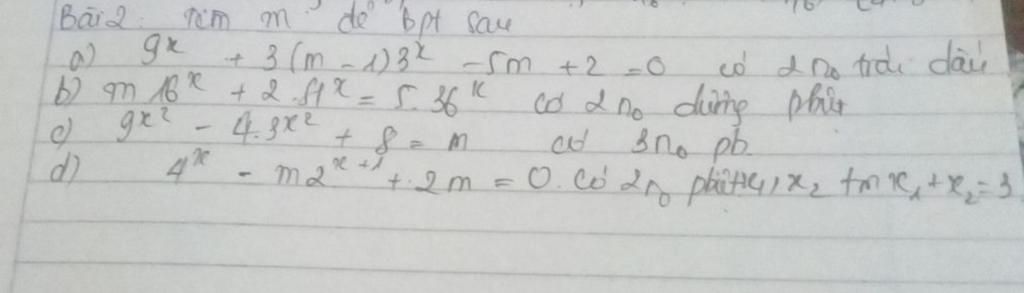 Bài 2: Tìm m để bpt sau
a) 9^x + 3(m - 1)3^x - 5m + 2 = 0 có 2 n₀ trái dấu
b) m 16^x + 2.81^x = 5.36^x có 2 n₀ dương phbt
c) 9^x² - 4.3^x² + 8 = m có 3 n₀ pb
d) 4^x - m2^x+1 + 2m = 0. Có 2 n₀ x₁, x₂ tm x₁ + x₂ = 3